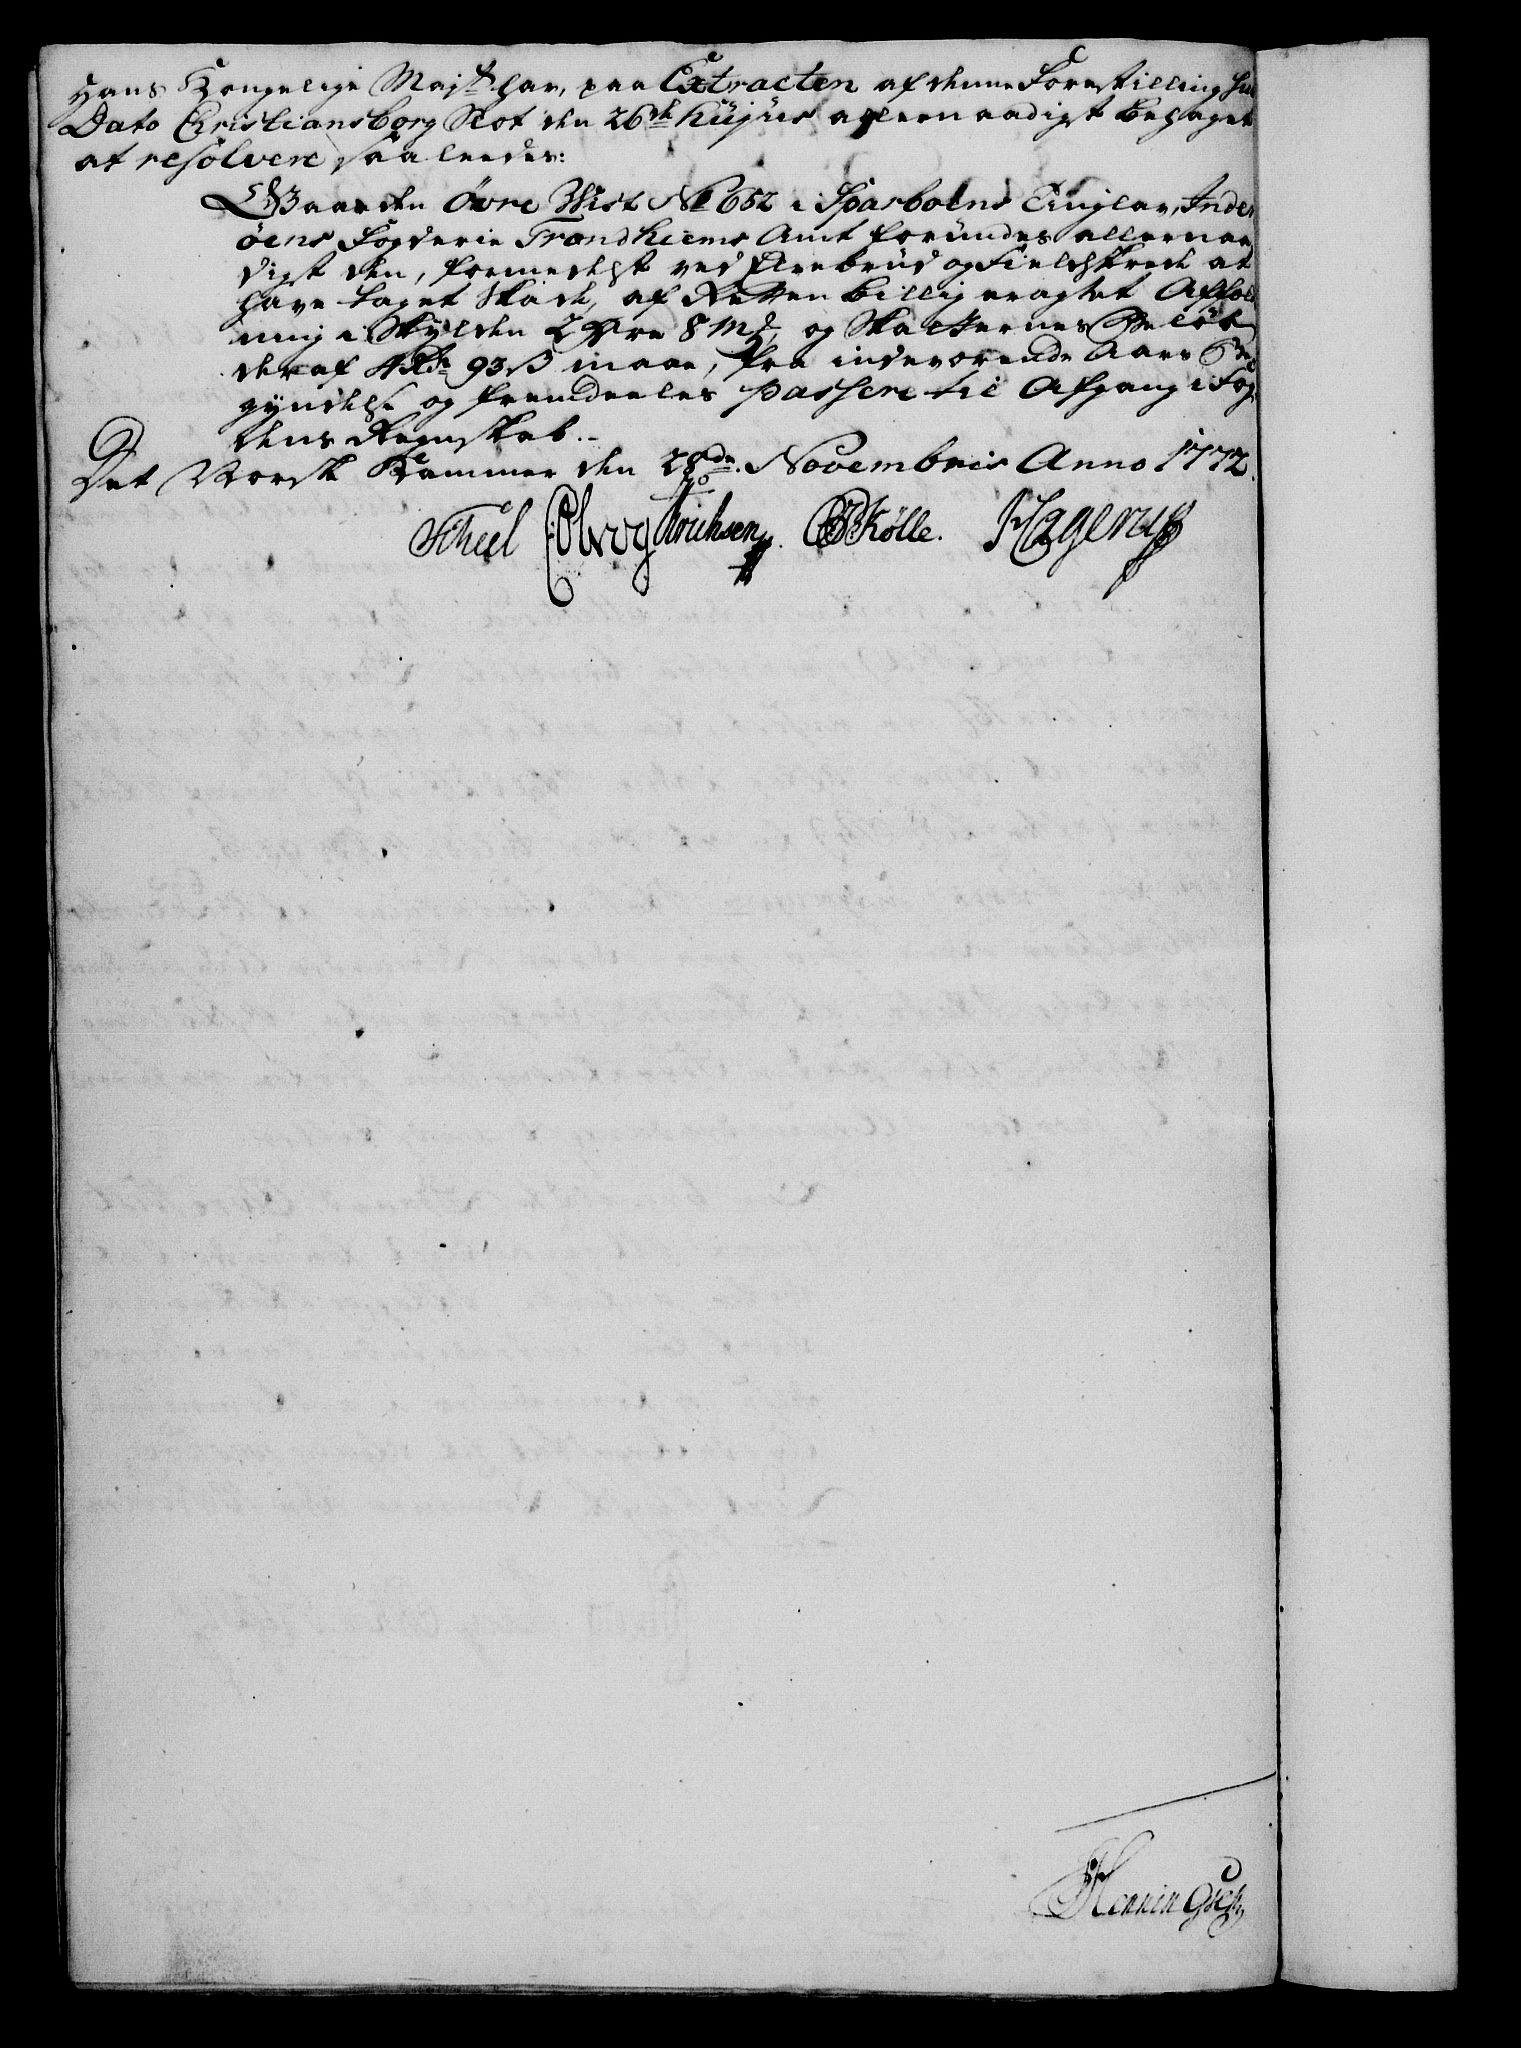 Hans Kongelige Majt. har, paa Extracten af denne Forestilling sub
Dato Christiansborg Slot den 26de hujus allernaadigst behaget
at resolvere saaledes:
Gaarden Øvre Wist No 652 i Sparboens Tinglav, Inder
øens Fogderie Trondhiems Amt forundes allernaa
digst den, formedelst ved Elvebrud og Fieldskreede at
have taget Skade, af Retten billig eragtet Affæld
ning i Skylden 2 Øre 8 Mk, og Skatternes Beløb
deraf 4 Rdr 93 ß maae, fra indeværende Aars Be
gyndelse og fremdeeles passere til Afgang i Fog
dens Regnskab.-
Det Norske Kammer den 28de Novembris Anno 1772.
Scheel Erichsen. Kølle. Hagerup
Henningsen